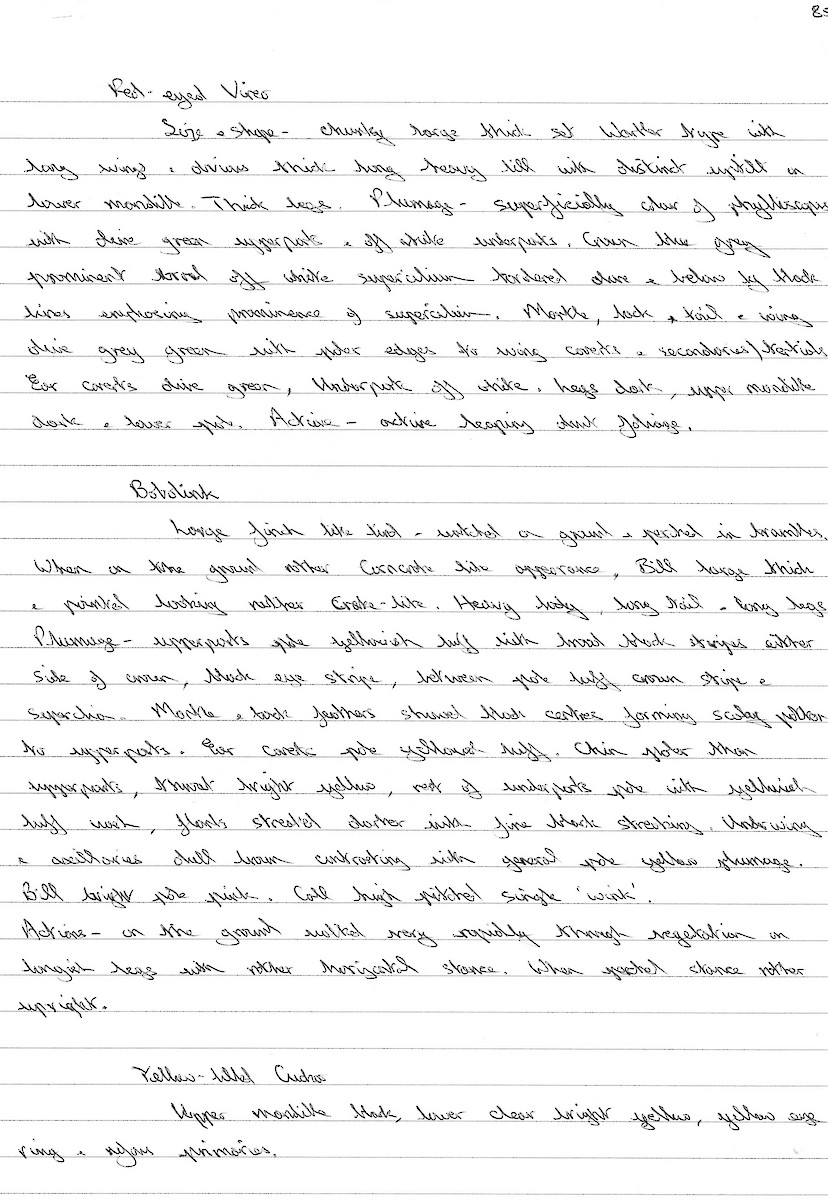 85
Red-eyed Vireo
Size & shape - chunky large thick set Warbler type with
long wings & obvious thick long heavy bill with distinct uptilt on
lower mandible. Thick legs. Plumage - superficially colour of phylloscopus
with olive green upperparts & off white underparts. Crown blue grey
prominent broad off white supercilium bordered above & below by black
lines emphasing prominence of supercilium. Mantle, back & tail & wing
olive grey green with paler edges to wing coverts & secondaries/tertials
Ear coverts olive green, Underparts off white. Legs dark, upper mandible
dark & lower pale. Actions - active leaping about foliage.
Bobolink
Large finch like bird - watched on ground & perched in brambles.
When on the ground rather Corncrake like appearance, Bill large thick
& pointed looking rather Crake-like. Heavy body, long tail - long legs
Plumage - upperparts pale yellowish buff with broad black stripes either
side of crown, black eye stripe, between pale buff crown stripe &
supercilia. Mantle & back feathers showed black centres forming scaley pattern
to upperparts. Ear coverts pale yellowish buff. Chin paler than
upperparts, throat bright yellow, rest of underparts pale with yellowish
buff wash, flanks streaked darker with fine black streaking. Underwing
& axillaries dull brown contrasting with general pale yellow plumage.
Bill bright pale pink. Call high pitched single 'wink'.
Actions - on the ground walked very rapidly through vegetation on
longish legs with rather horizontal stance. When perched stance rather
upright.
Yellow-billed Cuckoo
Upper mandible black, lower clear bright yellow, yellow eye
ring & rufous primaries.